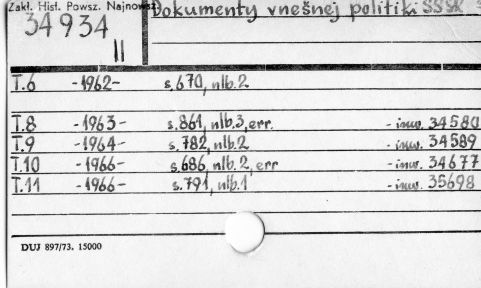 Zakł. Hist. Powsz. Najnowsz
Dokumenty vnešnej politiki SSSR
34934
II
T.6 -1962- s.670, nlb.2
T.8 -1963- s.861, nlb.3, err. - inw. 34580
T.9 -1964- s.782, nlb.2 - inw. 34589
T.10 -1966- s.686, nlb.2, err - inw. 34677
T.11 -1966- s.791, nlb.1 - inw. 35698
DUJ 897/73. 15000